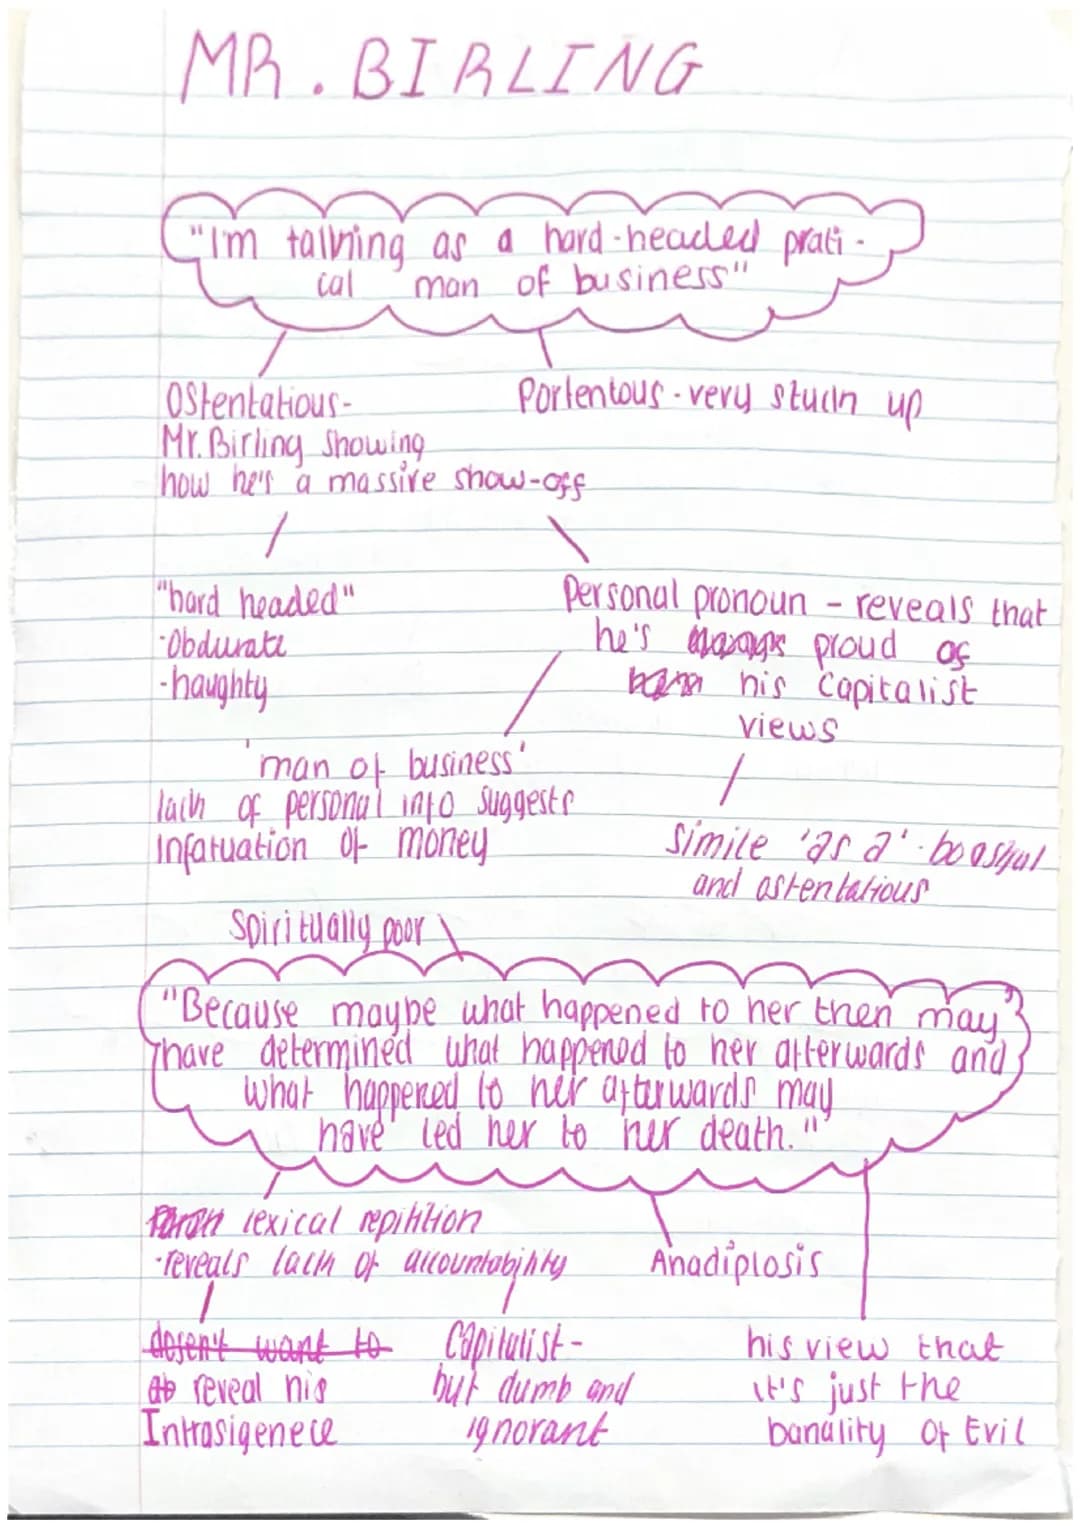 MR. BIRLING
"I'm talking as a hard-headed prati-
cal man of business"
Ostentatious-
Mr. Birling showing
how he's a massive show-off
Portentous - very stuck up
"hard headed"
·Obdurate
-haughty
Personal pronoun - reveals that
he's proud of
his Capitalist
views
'man of business'
lack of personal info suggests
Infatuation of money
Simile 'as a' - boastful
and ostentatious
Spiritually poor
"Because maybe what happened to her then may
have determined what happened to her afterwards and
what happened to her afterwards may
have led her to her death."
lexical repitition
·reveals lack of accountability
Anadiplosis
dosen't want to
reveal his
Intrasigenece
Capitalist-
but dumb and
ignorant
his view that
it's just the
banality of Evil